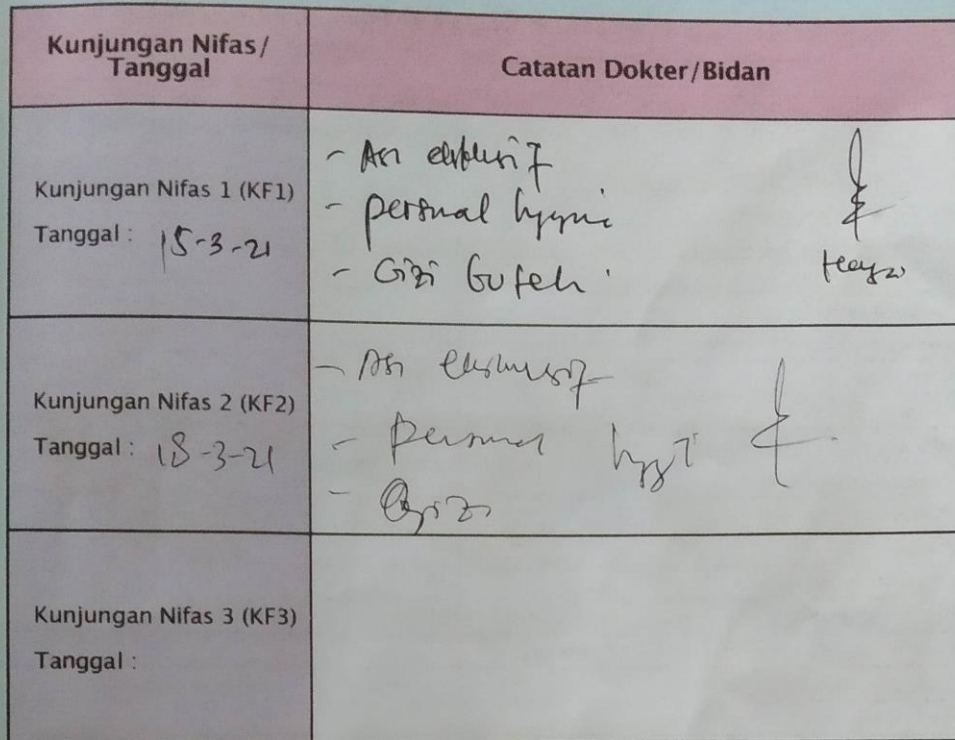 Kunjungan Nifas/
Tanggal
Catatan Dokter/Bidan
Kunjungan Nifas 1 (KF1)
Tanggal : 15-3-21
- Asi eksklusif
- personal hygni
- Gizi
Kunjungan Nifas 2 (KF2)
Tanggal : 18-3-21
- Asi eksklusif
- Personal
- Gizi
Kunjungan Nifas 3 (KF3)
Tanggal :